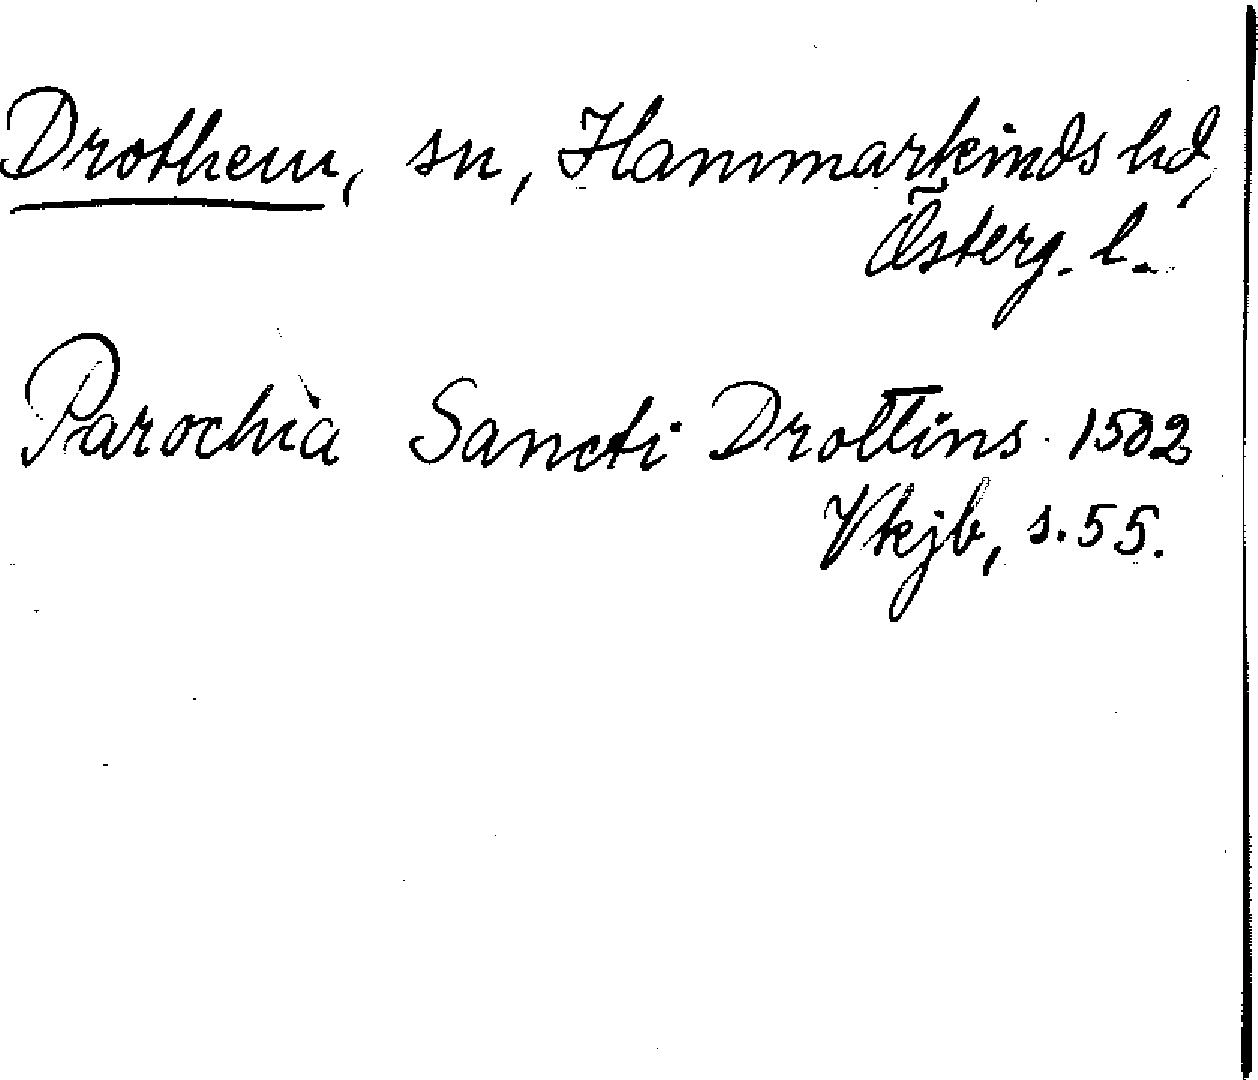 Drothem, sn, Hammarkinds hd,
Österg. l.
Parochia Sancti Drottins 1502
Vkjb, s. 55.